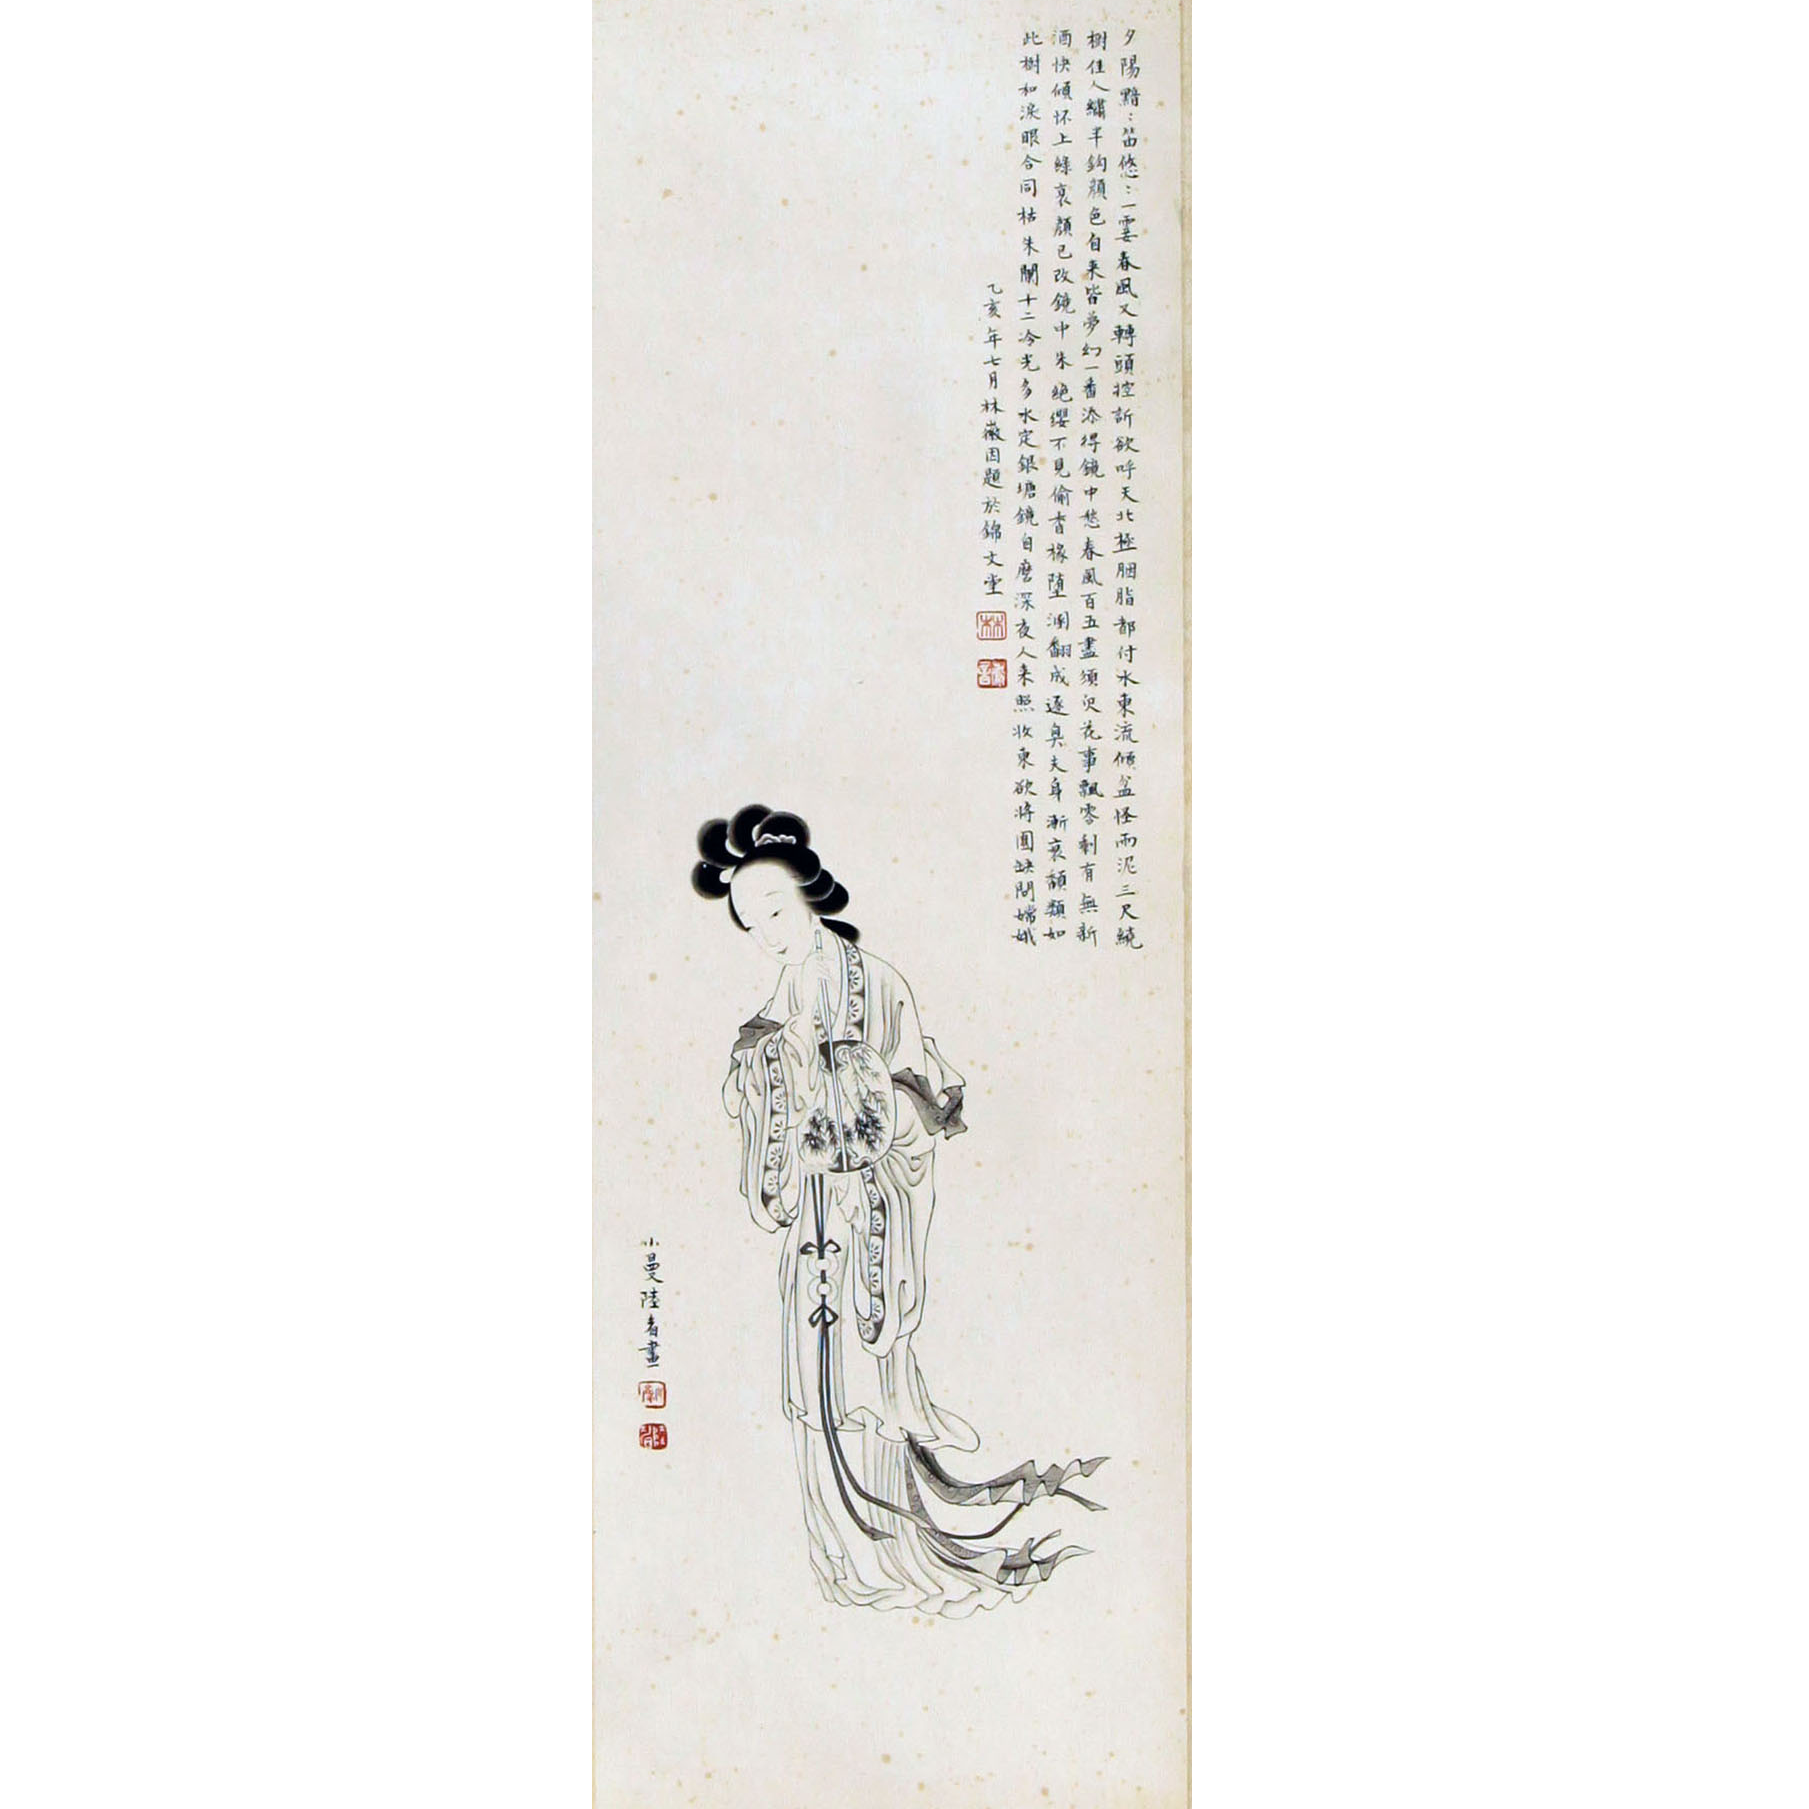 夕陽黯:笛悠:一霎春風又轉頭控訴欲呼天北極胭脂都付水東流傾盆怪雨泥三尺繞
樹佳人繡半鈎顏色自来皆夢幻一番添得鏡中愁春風百五盡須臾花事飄零剩有無新
酒快傾怀上綠衰顏已改鏡中朱絶纓不見偷香椽墮溷翻成逐臭夫身漸衰頹類如
此樹和淚眼合同枯朱闌十二冷光多水定銀塘鏡自磨深夜人来照妆東欲將圓缺問嫦娥
乙亥年七月林徽因題於錦文堂
小曼陸眉畫